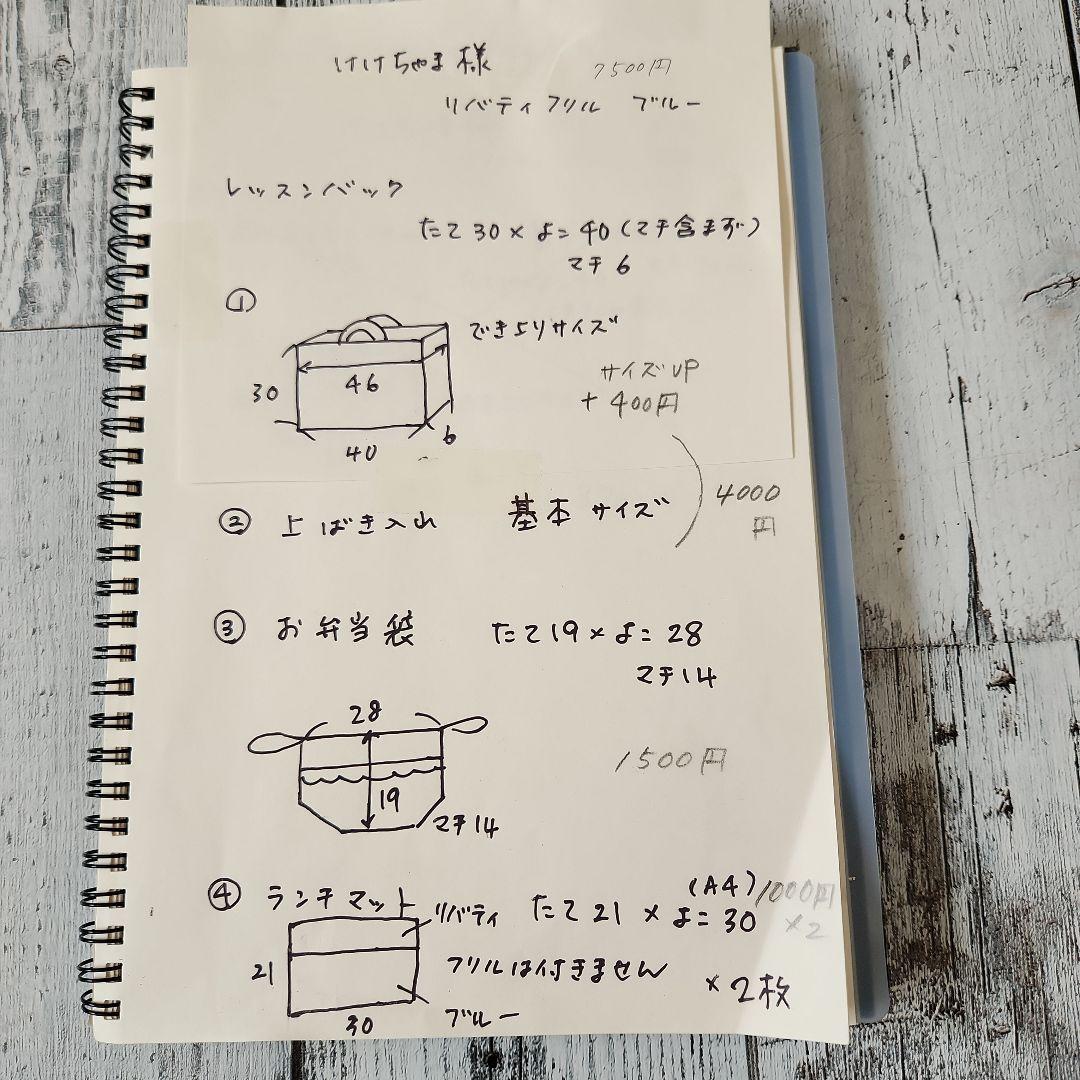 けけちゃま様 7500円
リバティフリル ブルー
レッスンバック
たて30×よこ40(マチ含まず)
マチ6
①
できよりサイズ
30
46
サイズUP
+400円
6
40
② 上ばき入れ 基本サイズ
4000
円
③ お弁当袋 たて19×よこ28
マチ14
28
1500円
19
マチ14
④ ランチマット
(A4) 1000円
リバティ たて21×よこ30
×2
21
フリルは付きません
×2枚
30
ブルー